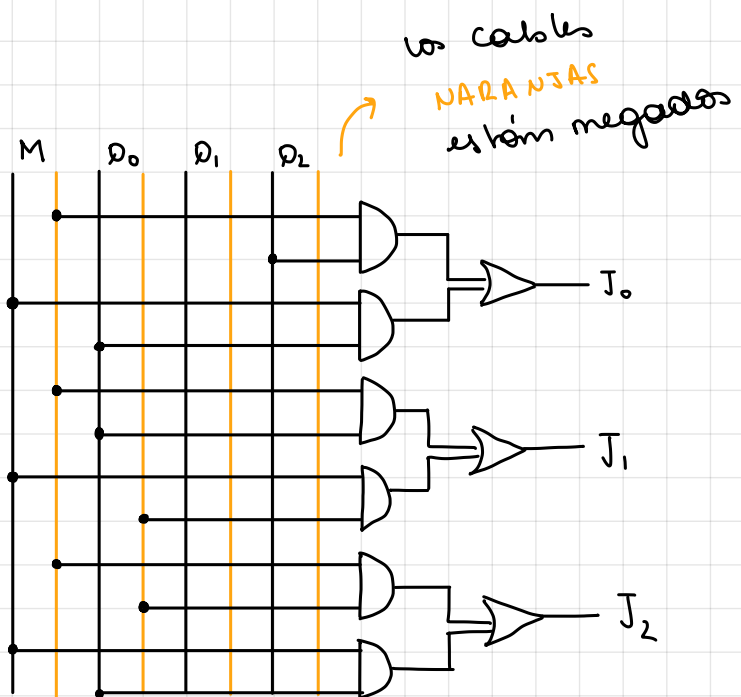 los cables
NARANJAS
están negados
M Q₀ Q₁ Q₂
J₀
J₁
J₂